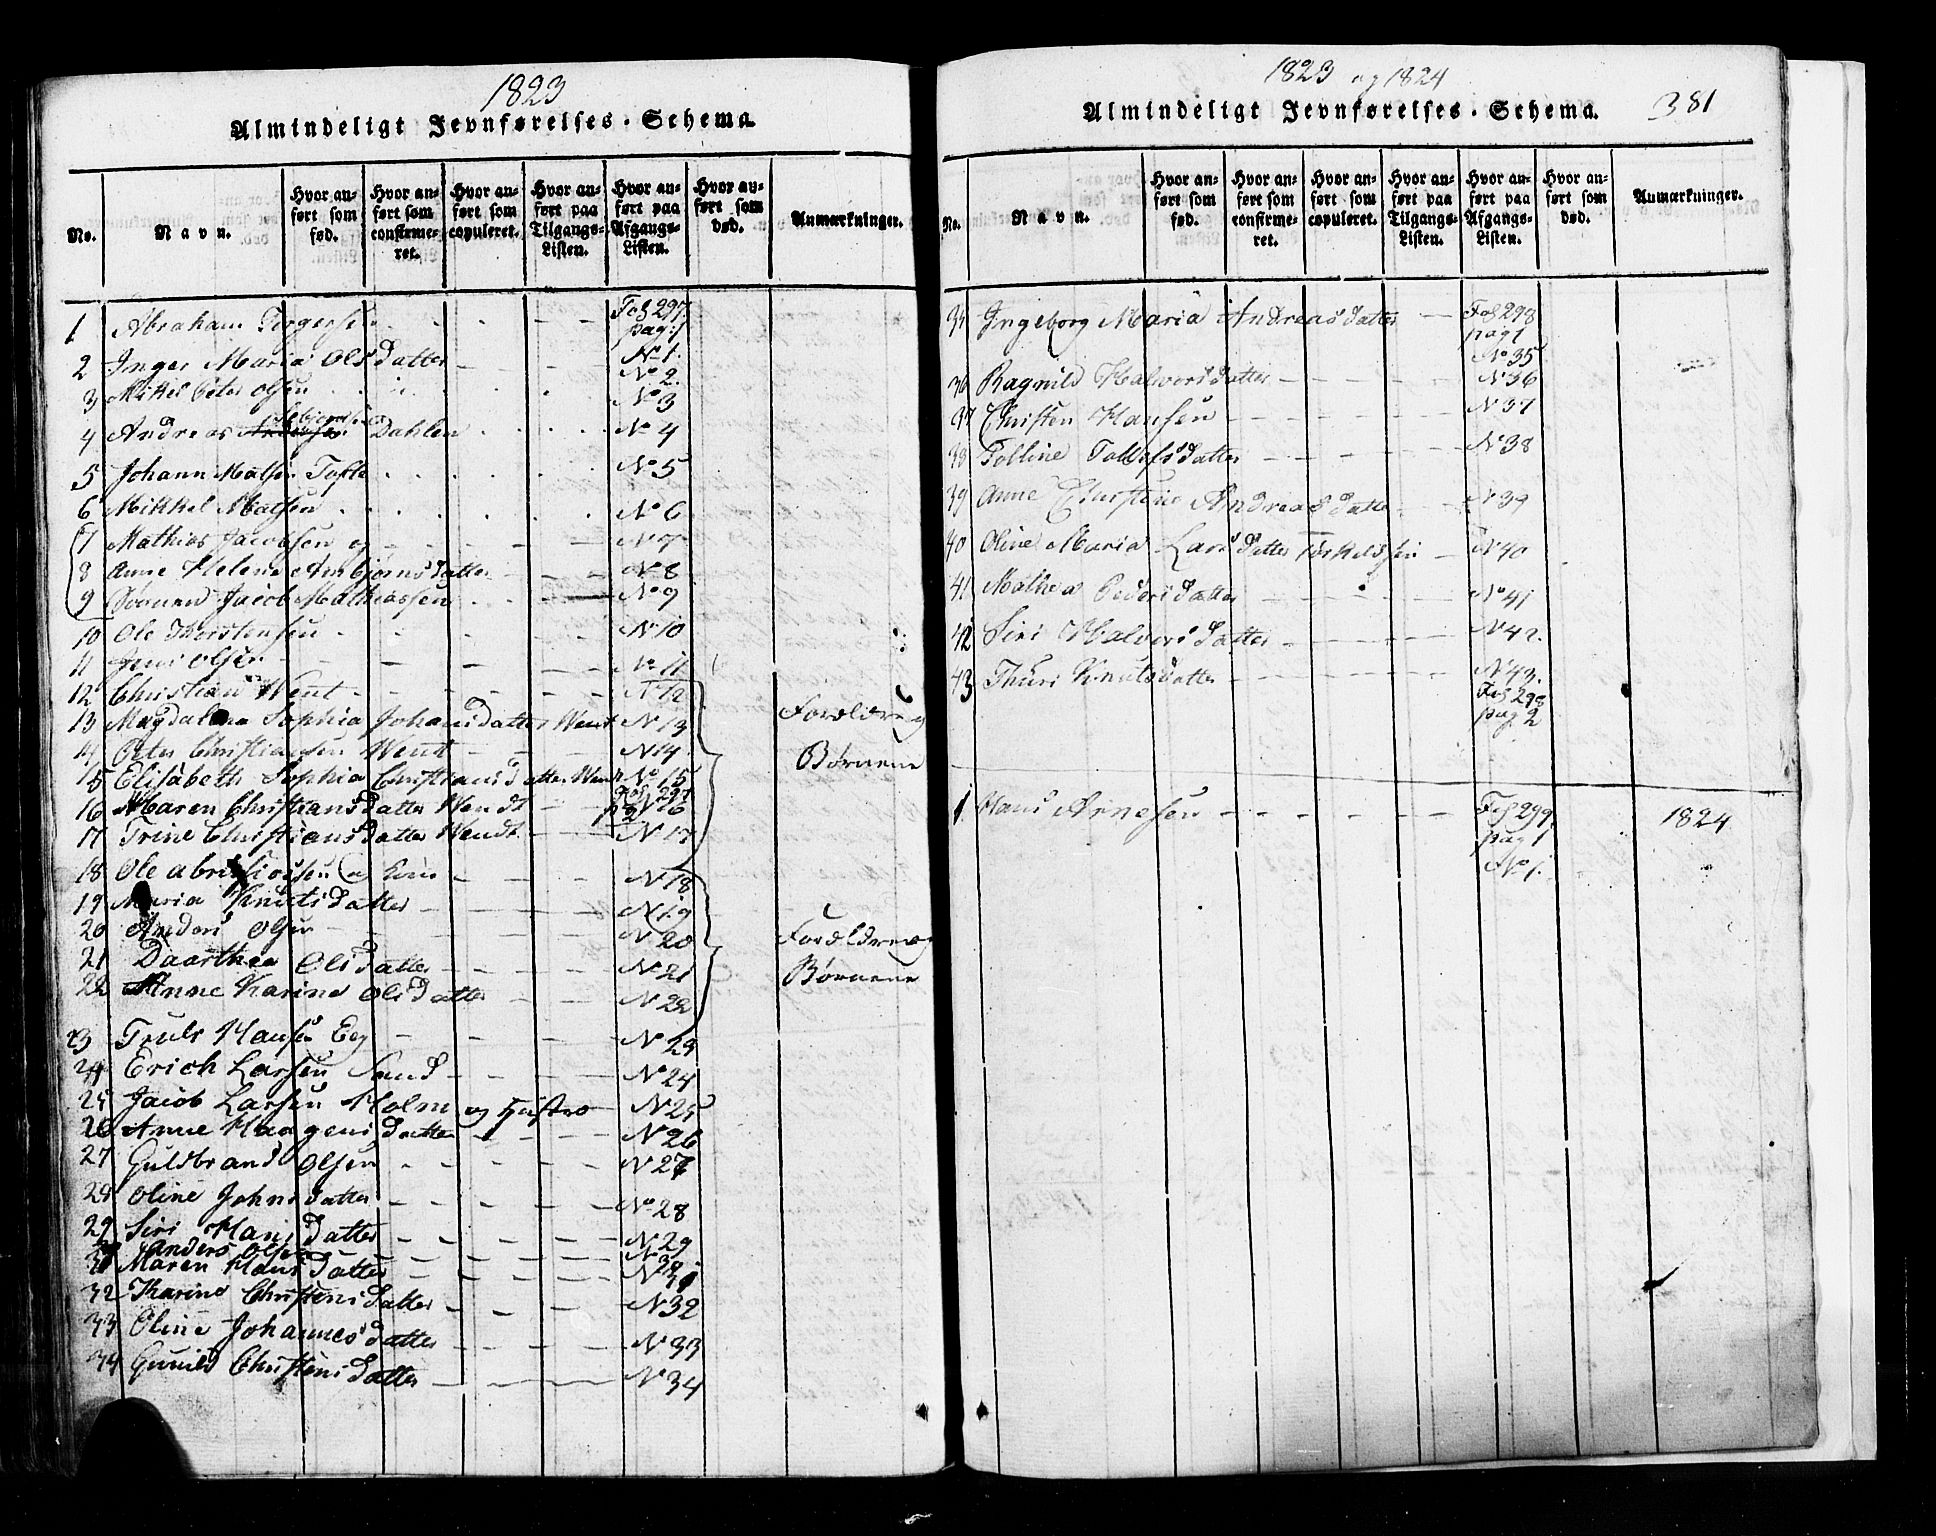 1823
Almindeligt Jevnførelses-Schema.
No.
Navn.
Hvor anført som fød.
Hvor anført som confirmeret.
Hvor anført som copuleret.
Hvor anført paa Tilgangs-Listen.
Hvor anført paa Afgangs-Listen.
Hvor anført som død.
Anmærkninger.
1 Abraham Torgersen Fol 297 pag: 1 No 1.
2 Inger Maria Olsdatter No 2.
3 Mikel Peter Olsen No 3
4 Andreas Dahlen No 4
5 Johann Matsen Tofte No 5
6 Mikkel Matsen No 6
7 Mathias Jacobsen og No 7
8 Anne Helene Arnbjørnsdatter No 8
9 Jacob Mathiassen No 9
10 Ole Thorstensen No 10
11 Jens Olsen No 11
12 Christian Went N 12
13 Magdalena Sophia Johansdatter Went N 13 Foreldre og
14 Peter Christiansen Wendt N 14 Børnene
15 Elisabeth Sophia Christiansdatter Wendt No 15
16 Maren Christiansdatter Wendt Fol 297 p 2 N 16
17 Trine Christiansdatter Wendt N 17
18 Ole og N 18
19 Maria Knutsdatter N 19
20 Anders Olsen N 20 Foreldre og
21 Daarthea Olsdatter N 21 Børnene
22 Anne Karine Olsdatter N 22
23 Truls Hansen Eeg N 23
24 Erich Larsen Sand No 24
25 Jacob Larsen Holm og Hustro N 25
26 Anne Haagensdatter N 26
27 Guldbrand Olsen N 27
28 Oline Johnsdatter No 28
29 Siri Hansdatter N 29
30 Anders Olsen N 30
31 Maren Hansdatter N 31
32 Karine Christensdatter N 32
33 Oline Johannesdatter N 33
34 Gunild Christensdatter N 34
1823 og 1824
Almindeligt Jevnførelses-Schema.
381
No.
Navn.
Hvor anført som fød.
Hvor anført som confirmeret.
Hvor anført som copuleret.
Hvor anført paa Tilgangs-Listen.
Hvor anført paa Afgangs-Listen.
Hvor anført som død.
Anmærkninger.
35 Ingeborg Maria Andreasdatter Fol 298 pag 1 No 35
36 Ragnild Halvorsdatter N 36
37 Christen Hansen N 37
38 Tolline Tollefsdatter N 38
39 Anne Christine Andreasdatter N 39
40 Oline Maria Larsdatter Torkeldsen N 40
41 Mathea Pedersdatter No 41
42 Siri Halvorsdatter N 42.
43 Thuri Knutsdatter N 43. Fol 298 pag 2
1 Hans Arnesen Fol 299 pag 1 No 1. 1824